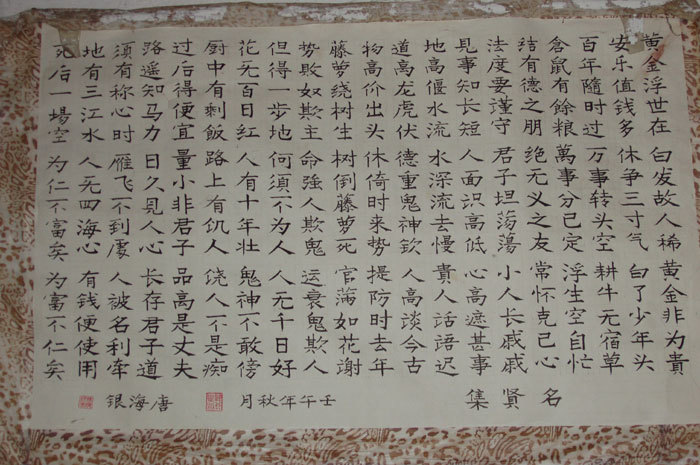 黄金浮世在白发故人稀黄金非为貴
安乐值钱多休争三寸气白了少年头
百年隨时过万事转头空耕牛无宿草
倉鼠有餘粮萬事分已定浮生空自忙
结有德之朋绝无义之友常怀克己心
法度要谨守君子坦荡荡小人长戚戚
見事知长短人面识高低心高遮甚事
地高偃水流水深流去慢貴人话语迟
道高龙虎伏德重鬼神钦人高談今古
物高价出头休倚时来势提防时去年
藤萝绕树生树倒藤萝死官满如花謝
势敗奴欺主命强人欺鬼运衰鬼欺人
但得一步地何須不为人人无千日好
花无百日红人有十年壮鬼神不敢傍
厨中有剩飯路上有饥人饶人不是痴
过后得便宜量小非君子品高是丈夫
路遥知马力日久見人心长存君子道
須有称心时雁飞不到處人被名利牵
地有三江水人无四海心有钱便使用
死后一場空为仁不富矣为富不仁矣
名賢集
壬午年秋月
唐海银